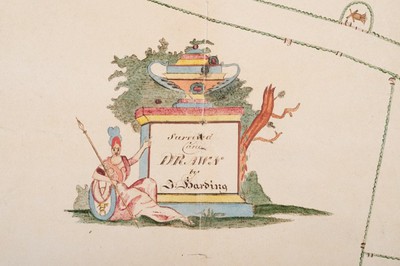 Surveyed
and
DRAWN
by
J. Harding